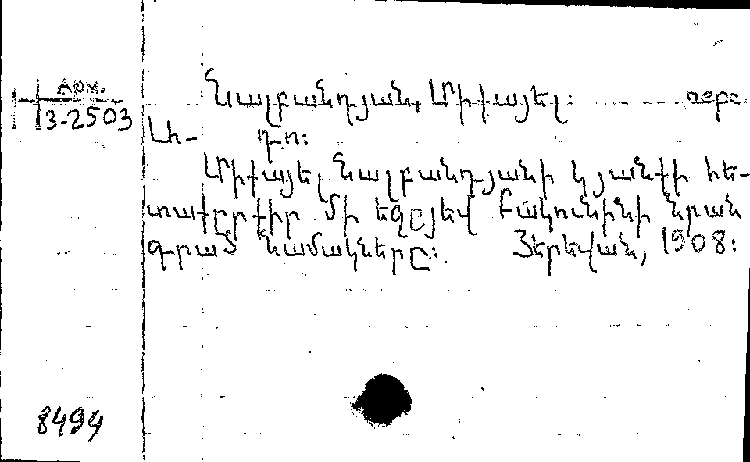 Арм.
3-2503
Նալբանդյան, Միքայել։
Լի-
դո։
Միքայել Նալբանդյանի կյանքի հե-
տաքրքիր մի եզրը և Բակունինի նրան
գրած նամակները։ Յերեվան, 1908։
8494